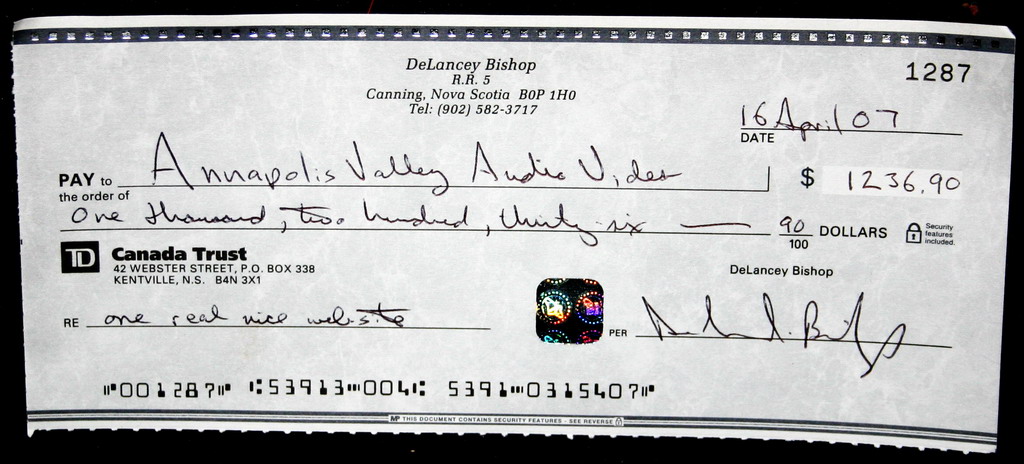 DeLancey Bishop
R.R. 5
Canning, Nova Scotia B0P 1H0
Tel: (902) 582-3717
1287
16 April 07
DATE
PAY to the order of Annapolis Valley Audio Video $ 1236.90
One thousand, two hundred, thirty six — 90/100 DOLLARS Security features included.
TD Canada Trust
42 WEBSTER STREET, P.O. BOX 338
KENTVILLE, N.S. B4N 3X1
DeLancey Bishop
RE one real nice website
PER
⑈001287⑈ ⑆53913⑉004⑆ 5391⑉0315407⑈
MP THIS DOCUMENT CONTAINS SECURITY FEATURES - SEE REVERSE